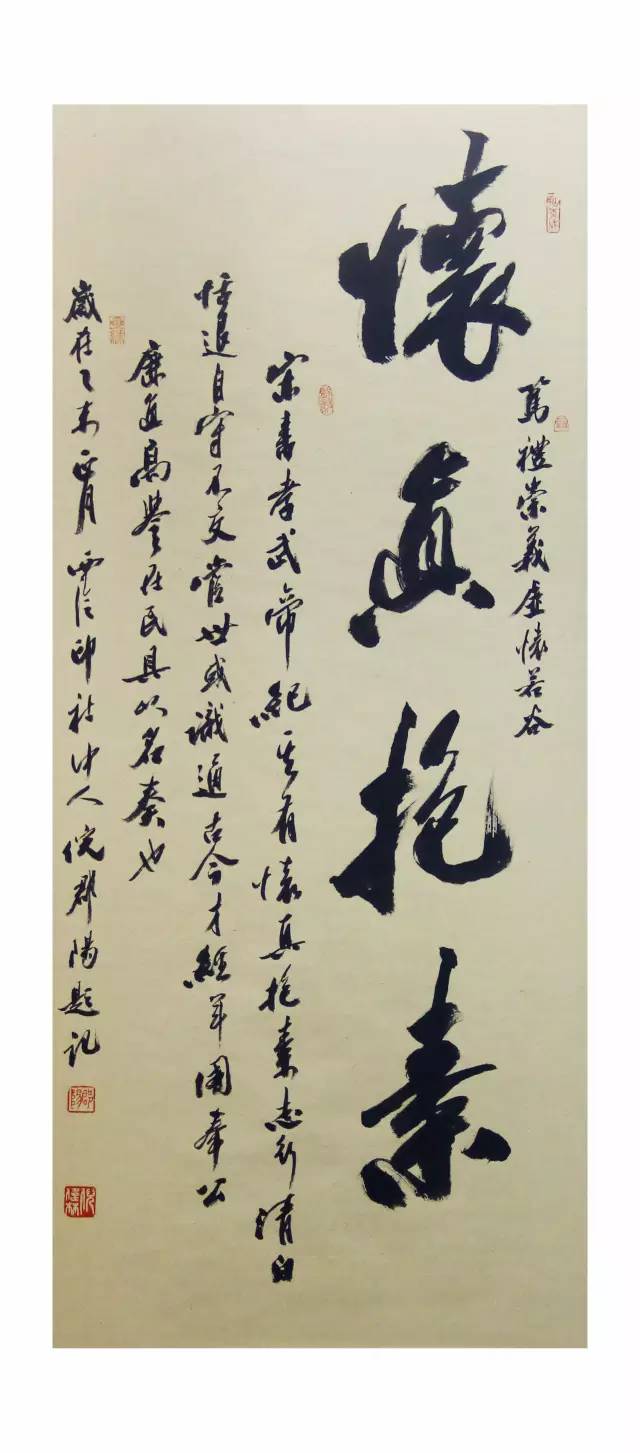 篤禮崇義虛懷若谷
懷真抱素
宋書孝武帝紀其有懷真抱素志行清白
恬退自守不交當世或識通古今才經軍國奉公
廉直高譽在民具以名奏也
歲在乙未正月西泠印社中人倪郡陽題記